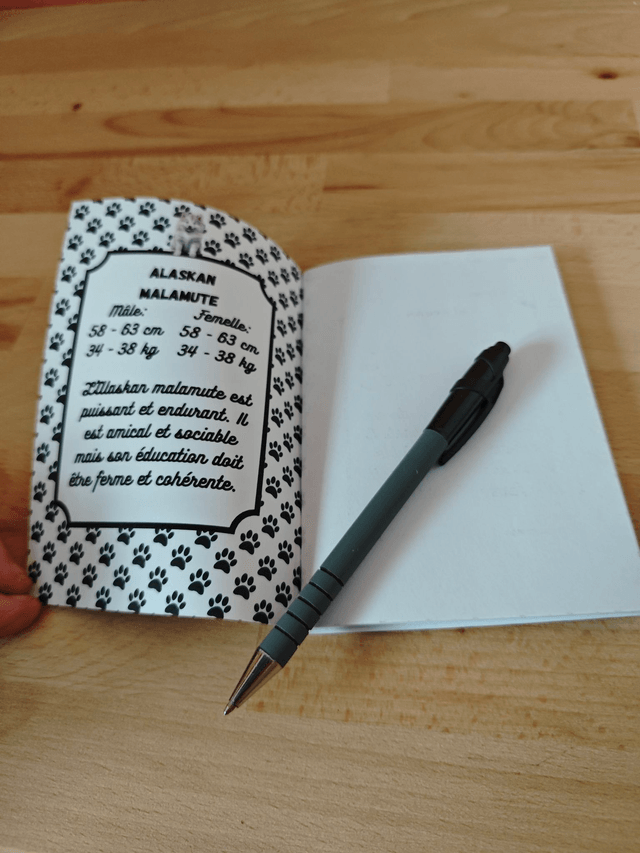 ALASKAN
MALAMUTE
Mâle: Femelle:
58 - 63 cm 58 - 63 cm
34 - 38 kg 34 - 38 kg
L'Alaskan malamute est
puissant et endurant. Il
est amical et sociable
mais son éducation doit
être ferme et cohérente.